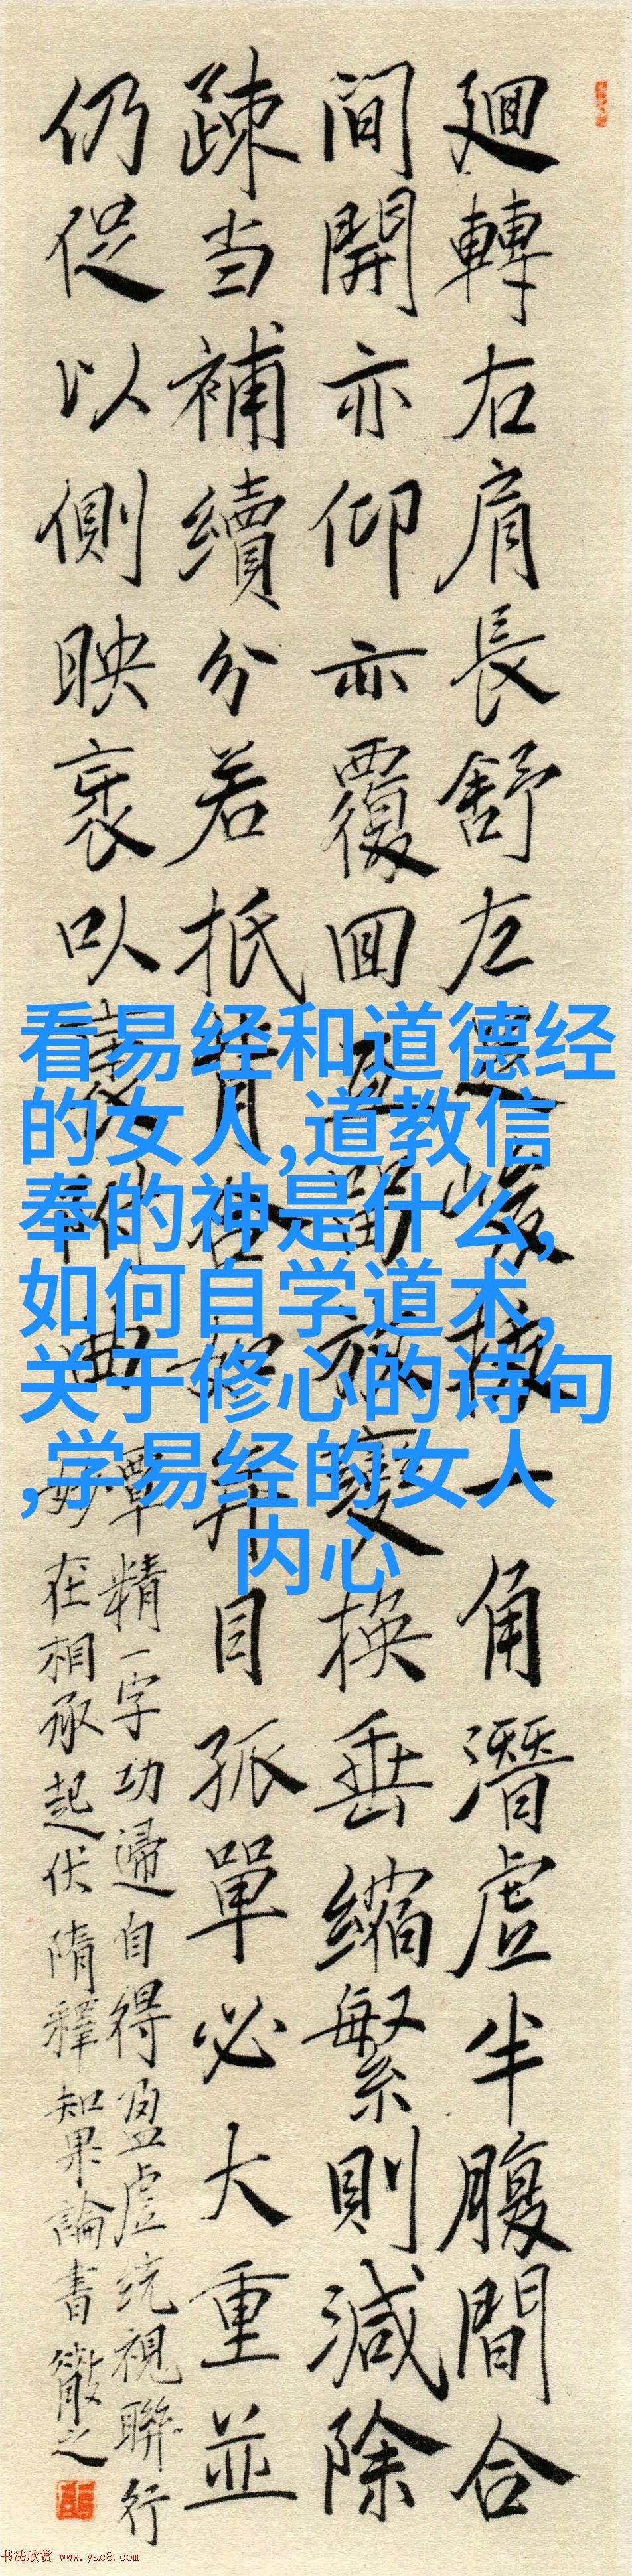 廻轉右肩長舒左
一角潛虛半腹間合
間開亦仰亦覆回
變換垂縮繁則減除
疎当補續分若抵
目孤單必大重並
仍促以側映裹以
妙
覃精一字功歸自得盈虛統視聯行
在相承起伏隋釋知果論書徹之
看易经和道德经
的女人,道教信
奉的神是什么,
如何自学道术,
关于修心的诗句
,学易经的女人
内心
书法欣赏 www.yac8.com